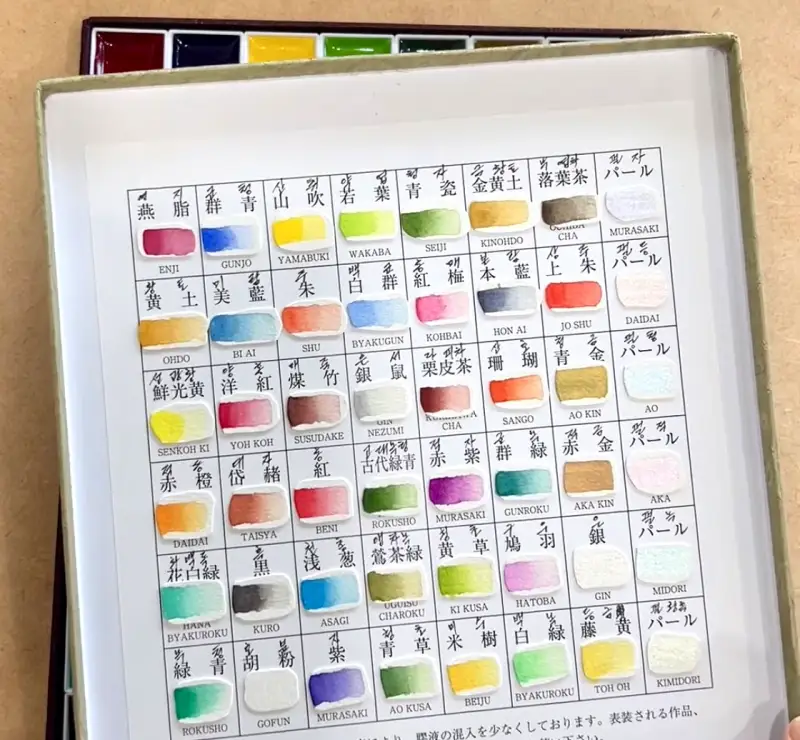 연지 군청 산취 약엽 청자 금황토 낙엽차 펄 자
燕脂 群青 山吹 若葉 青瓷 金黄土 落葉茶 パール
ENJI GUNJO YAMABUKI WAKABA SEIJI KINOHDO CHA MURASAKI
황토 미람 주 백군 홍매 본람 상주 펄 등
黄土 美藍 朱 白群 紅梅 本藍 上朱 パール
OHDO BI AI SHU BYAKUGUN KOHBAI HON AI JO SHU DAIDAI
선광황 양홍 매죽 은서 산호 청금 펄
鮮光黄 洋紅 煤竹 銀鼠 栗皮茶 珊瑚 青金 パール
SENKOH KI YOH KOH SUSUDAKE GIN NEZUMI CHA SANGO AO KIN AO
적등 대자 홍 고대녹청 적자 군록 적금 펄 적
赤橙 岱赭 紅 古代緑青 赤紫 群緑 赤金 パール
DAIDAI TAISYA BENI ROKUSHO MURASAKI GUNROKU AKA KIN AKA
화백록 흑 앵차록 황초 구우 은 펄 녹
花白緑 黒 浅葱 鶯茶緑 黄草 鳩羽 銀 パール
HANA BYAKUROKU KURO ASAGI UGUISU CHAROKU KI KUSA HATOBA GIN MIDORI
녹청 호분 자 청초 백록 펄
緑青 胡粉 紫 青草 米樹 白緑 藤黄 パール
ROKUSHO GOFUN MURASAKI AO KUSA BEIJU BYAKUROKU TOH OH KIMIDORI
膠液の混入を少なくしております。表装される作品、